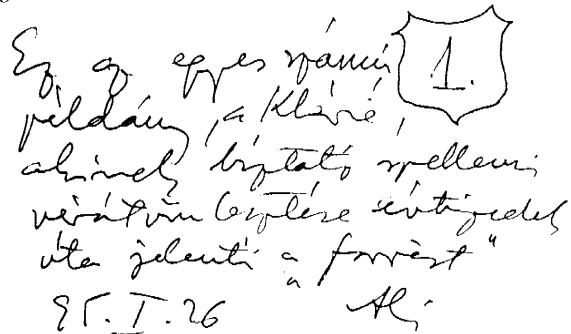 Ez az egyes számú 1.
példány, a Klárié,
akinek biztató szellemi
vérátömlesztése évtizedek
óta jelenti a „forrást"
95. I. 26 Ali